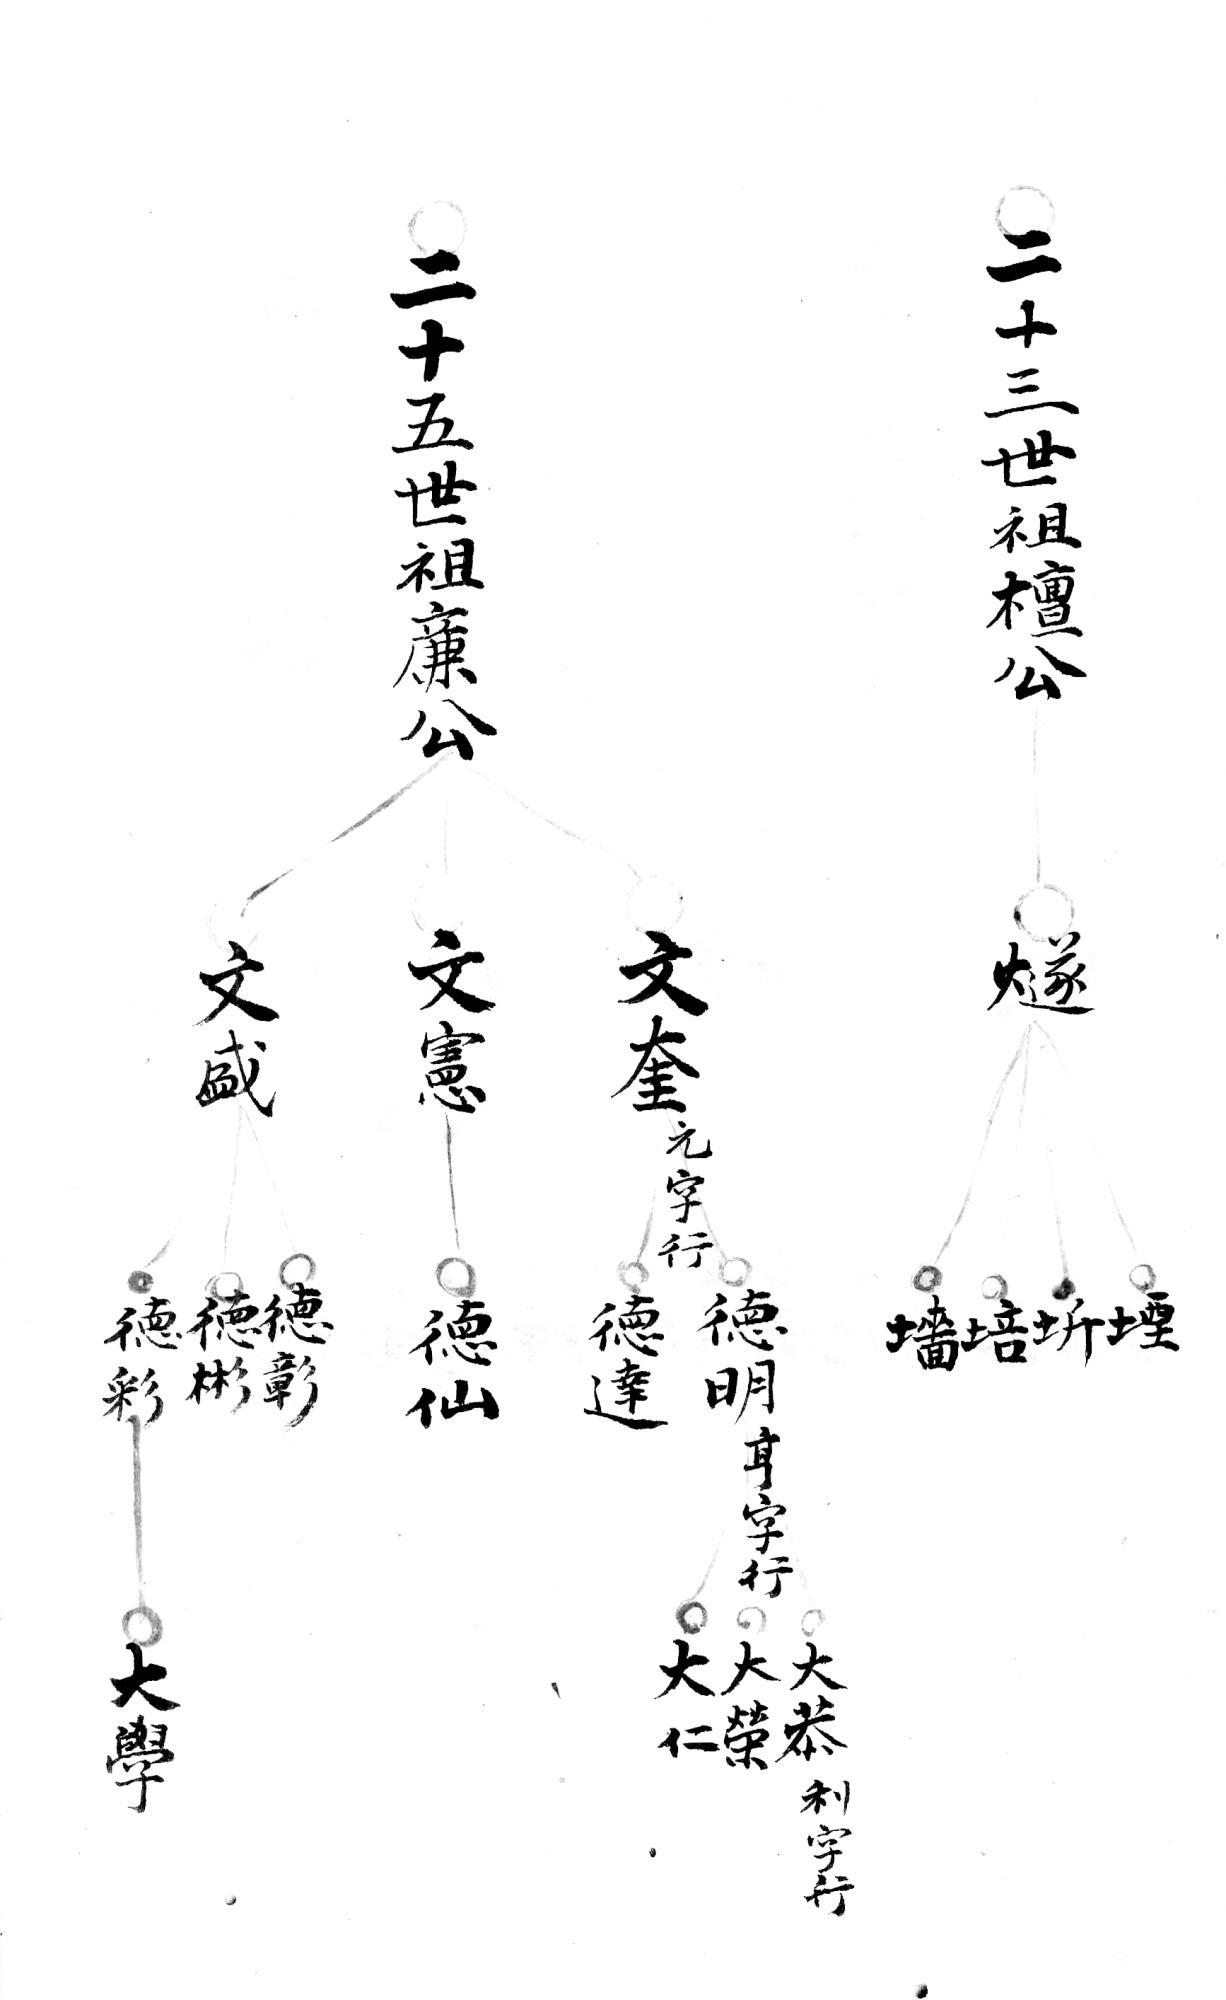 二十三世祖檀公
燧
堙
坍
培
墻
二十五世祖廉公
文奎
元字行
文憲
文盛
德明
亨字行
德達
德仙
德彰
德彬
德彩
大恭
利字行
大榮
大仁
大學